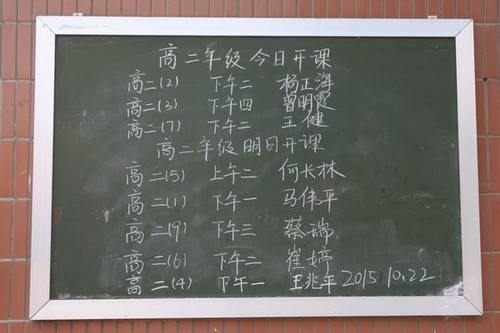 高二年级今日开课
高二(2) 下午二 杨正海
高二(3) 下午四 曾明霞
高二(7) 下午二 王健
高二年级明日开课
高二(5) 上午二 何长林
高二(1) 下午一 马伟平
高二(9) 下午三 蔡端
高二(6) 下午二 崔婷
高二(4) 下午一 王兆平 2015.10.22